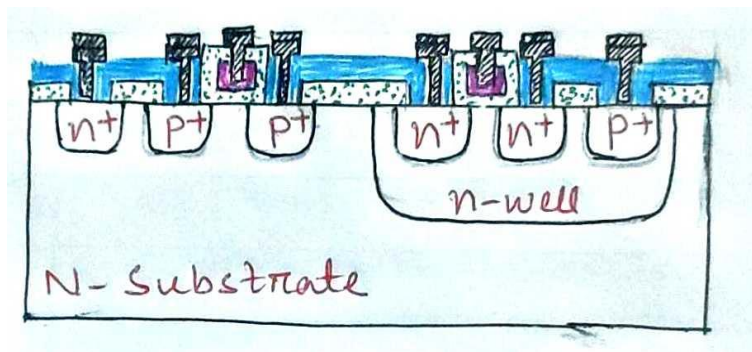 n+ p+ p+ n+ n+ p+
n-well
N-Substrate